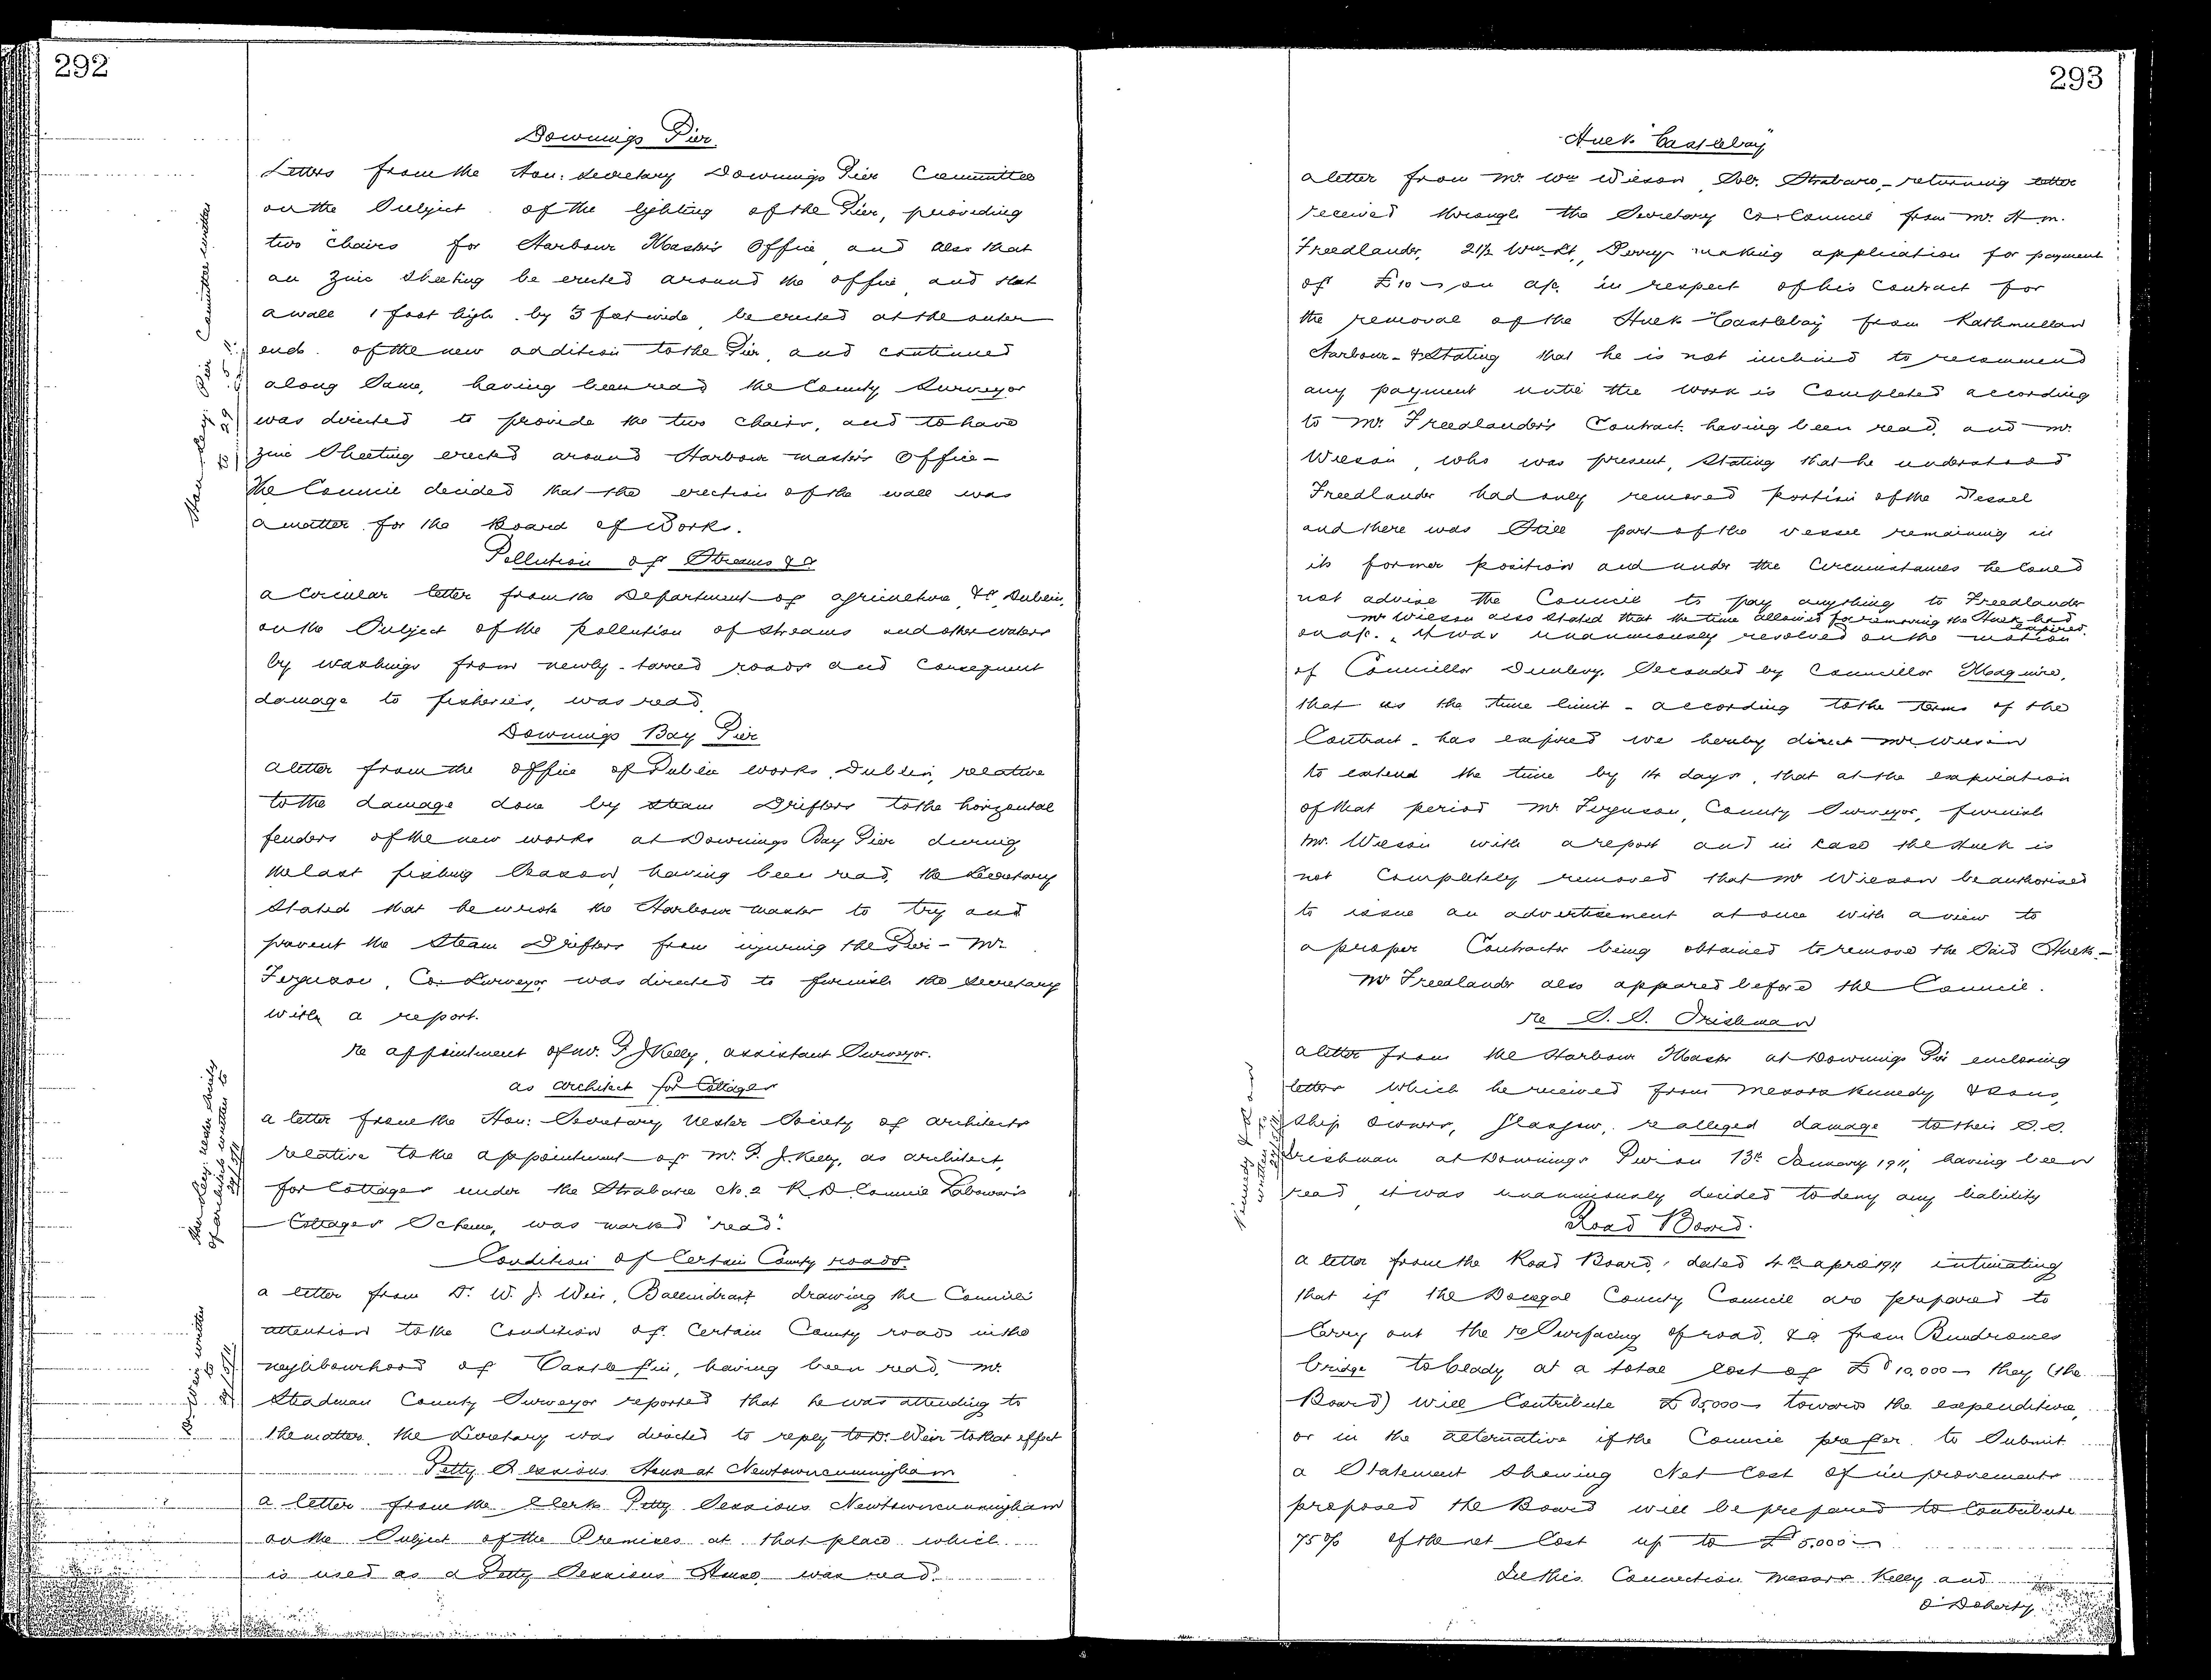 292
Downings Pier
Letters from the Hon: Secretary Downings Pier Committee
on the Subject of the lighting of the Pier, providing
two chairs for Harbour Master's Office and also that
an zinc sheeting be erected around the office and that
a wall 1 foot high by 3 feet wide be erected at the outer
ends of the new addition to the Pier, and continued
along Same, having been read the County Surveyor
was directed to provide the two chairs, and to have
zinc Sheeting erected around Harbour master's Office -
The Council decided that the erection of the wall was
a matter for the Board of Works.
Hon Secy: Pier Committee written
to 29/5/11
Pollution of Streams &c
a Circular letter from the Department of agriculture &c, Dublin,
on the Subject of the pollution of streams and other waters
by washings from newly-tarred roads and consequent
damage to fisheries, was read.
Downings Bay Pier
a letter from the office of Public works, Dublin, relative
to the damage done by steam Drifters to the horizontal
fenders of the new works at Downings Bay Pier during
the last fishing Season, having been read, the Secretary
Stated that he wrote the Harbour master to try and
prevent the Steam Drifters from injuring the Pier - Mr
Ferguson, Co. Surveyor was directed to furnish the Secretary
with a report.
re appointment of Mr. P J Kelly, assistant Surveyor.
as architect for Cottages
a letter from the Hon: Secretary Ulster Society of architects
relative to the appointment of Mr. P. J. Kelly, as architect,
for Cottages under the Strabane No. 2 R D Council Labourers
Cottages Scheme, was marked "read".
Hon Secy: Ulster Society
of architects written to
29/5/11
Condition of Certain County roads.
a letter from Dr. W. J. Weir, Ballindrait drawing the Council's
attention to the Condition of Certain County roads in the
neighbourhood of Castlefin, having been read, Mr.
Steadman County Surveyor reported that he was attending to
the matter. the Secretary was directed to reply to Dr. Weir to that effect
Dr. Weir written
to
29/5/11
Petty Sessions House at Newtowncunningham
a letter from the Clerk Petty Sessions Newtowncunningham
on the Subject of the Premises at that place which
is used as a Petty Sessions House, was read.
293
Hulk "Castlebay"
a letter from Mr. Wm Wilson, Solr. Strabane, - returning letter
received through the Secretary Co: Council from Mr. H M.
Freedlander, 21½ Wm St, Derry making application for payment
of £10 - on a/c. in respect of his Contract for
the removal of the Hulk "Castlebay" from Rathmullan
Harbour - & Stating that he is not inclined to recommend
any payment until the work is Completed according
to Mr. Freedlander's Contract. having been read, and Mr.
Wilson, who was present, Stating that he understood
Freedlander had only removed portion of the Vessel
and there was Still part of the vessel remaining in
its former position and under the Circumstances he could
not advise the Council to pay anything to Freedlander
Mr Wilson also Stated that the time allowed for removing the Hulk had
expired.
on a/c., it was unanimously resolved on the motion
of Councillor Dunlevy, Seconded by Councillor Maguire,
that as the time limit - according to the terms of the
Contract - has expired we hereby direct Mr Wilson
to extend the time by 14 days, that at the expiration
of that period Mr Ferguson, County Surveyor, furnish
Mr. Wilson with a report and in case the Hulk is
not Completely removed that Mr Wilson be authorised
to issue an advertisement at once with a view to
a proper Contractor being obtained to remove the Said Hulk. -
Mr Freedlander also appeared before the Council.
re S. S. Irishman
a letter from the Harbour Master at Downings Pier enclosing
letter which he received from Messrs Kennedy & Sons,
Ship owners, Glasgow, re alleged damage to their S.S.
Irishman at Downings Pier on 13th January 1911, having been
read it was unanimously decided to deny any liability
Kennedy & Sons
written to
Road Board.
a letter from the Road Board, dated 4th april 1911 intimating
that if the Donegal County Council are prepared to
Carry out the reSurfacing of road, &c from Bundrowes
bridge to Clady at a total Cost of £10,000 - they (the
Board) will Contribute £5000 - towards the expenditure,
or in the alternative if the Council prefer to Submit
a Statement Shewing Net Cost of improvements
proposed the Board will be prepared to Contribute
75% of the net Cost up to £5,000 -
In this Connection Messrs Kelly and
O'Doherty